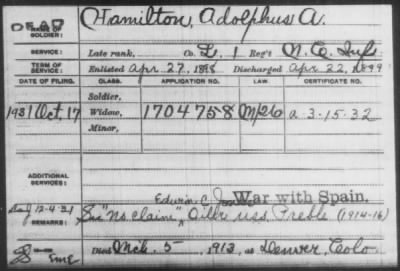 DEAD
NAME OF SOLDIER: Hamilton, Adolphus A.
SERVICE: Late rank, Co. L, 1 Reg't N.C. Inf.
TERM OF SERVICE: Enlisted Apr 27, 1898 Discharged Apr 22, 1899
DATE OF FILING. CLASS. APPLICATION NO. LAW. CERTIFICATE NO.
Soldier,
1931 Oct 17 Widow, 1704758 a-3-15-32
Minor,
ADDITIONAL SERVICES:
Edwin C. War with Spain.
12-4-31 "No claim" Oiler USS Preble (1914-16)
REMARKS:
Died Mch 5, 1913, at Denver, Colo